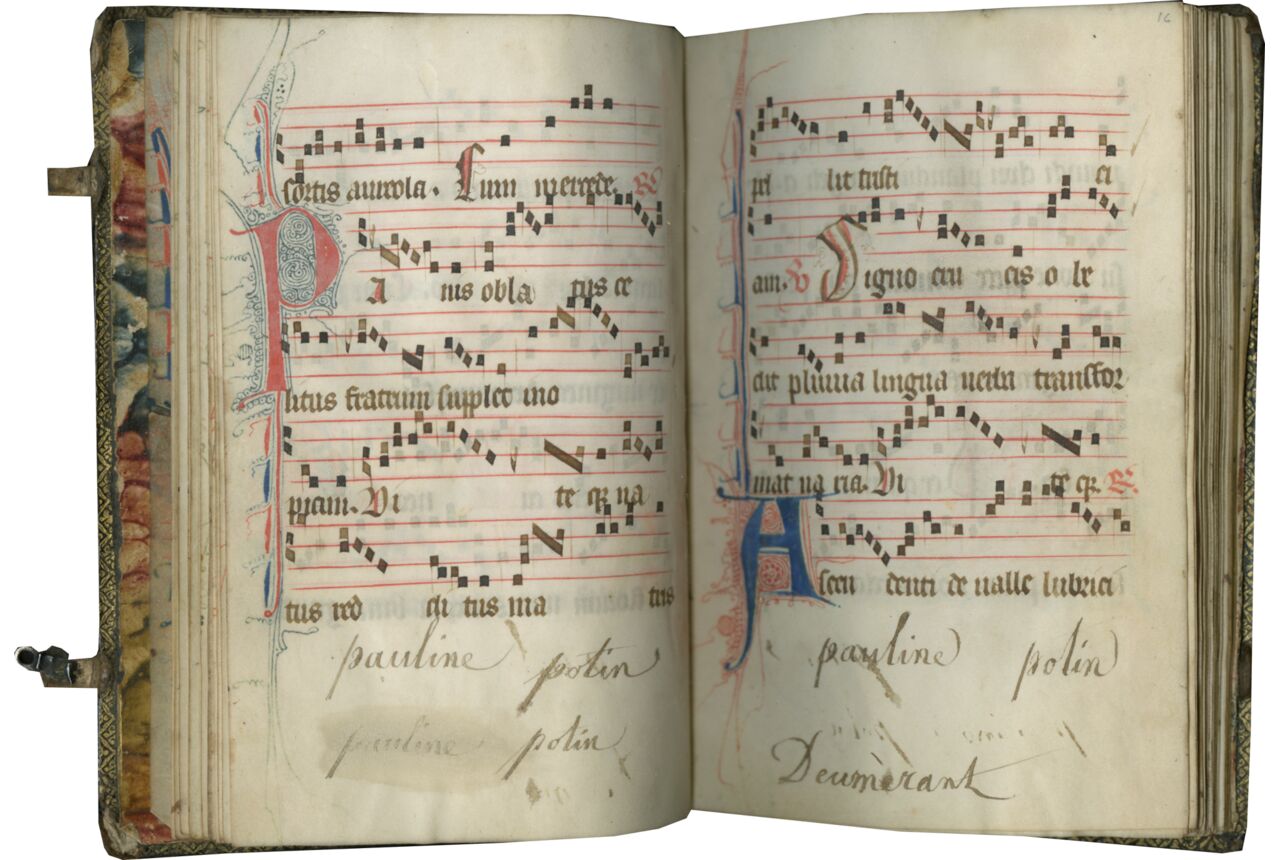 sortis aureola. Cum mercede. R
PA nis obla tus ce
litus fratrum supplet ino
piam. Vi te qz na
tus red di tus ma tris
pauline potin
pauline potin
16
pel lit tristi ci
am. V Signo cru cis o re
dit pluuia lingua uerba transfor
mat ua ria. Vi te qz. R
Ascen denti de ualle lubrici
pauline potin
Deumerant